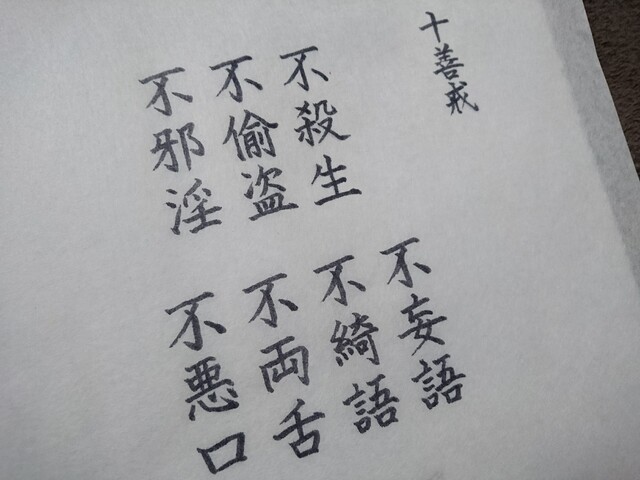 十善戒
不殺生
不偷盗
不邪淫
不妄語
不綺語
不両舌
不悪口